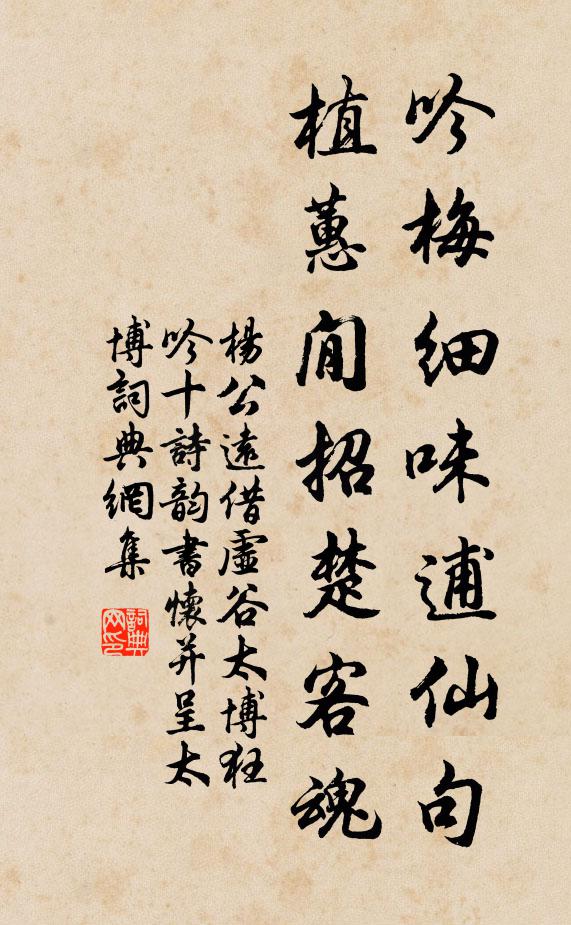 吟梅細味逋仙句
植蕙閒招楚客魂
楊公遠借虛谷太博狂
吟十詩韵書懷并呈太
博詞典網集
詞典
網印